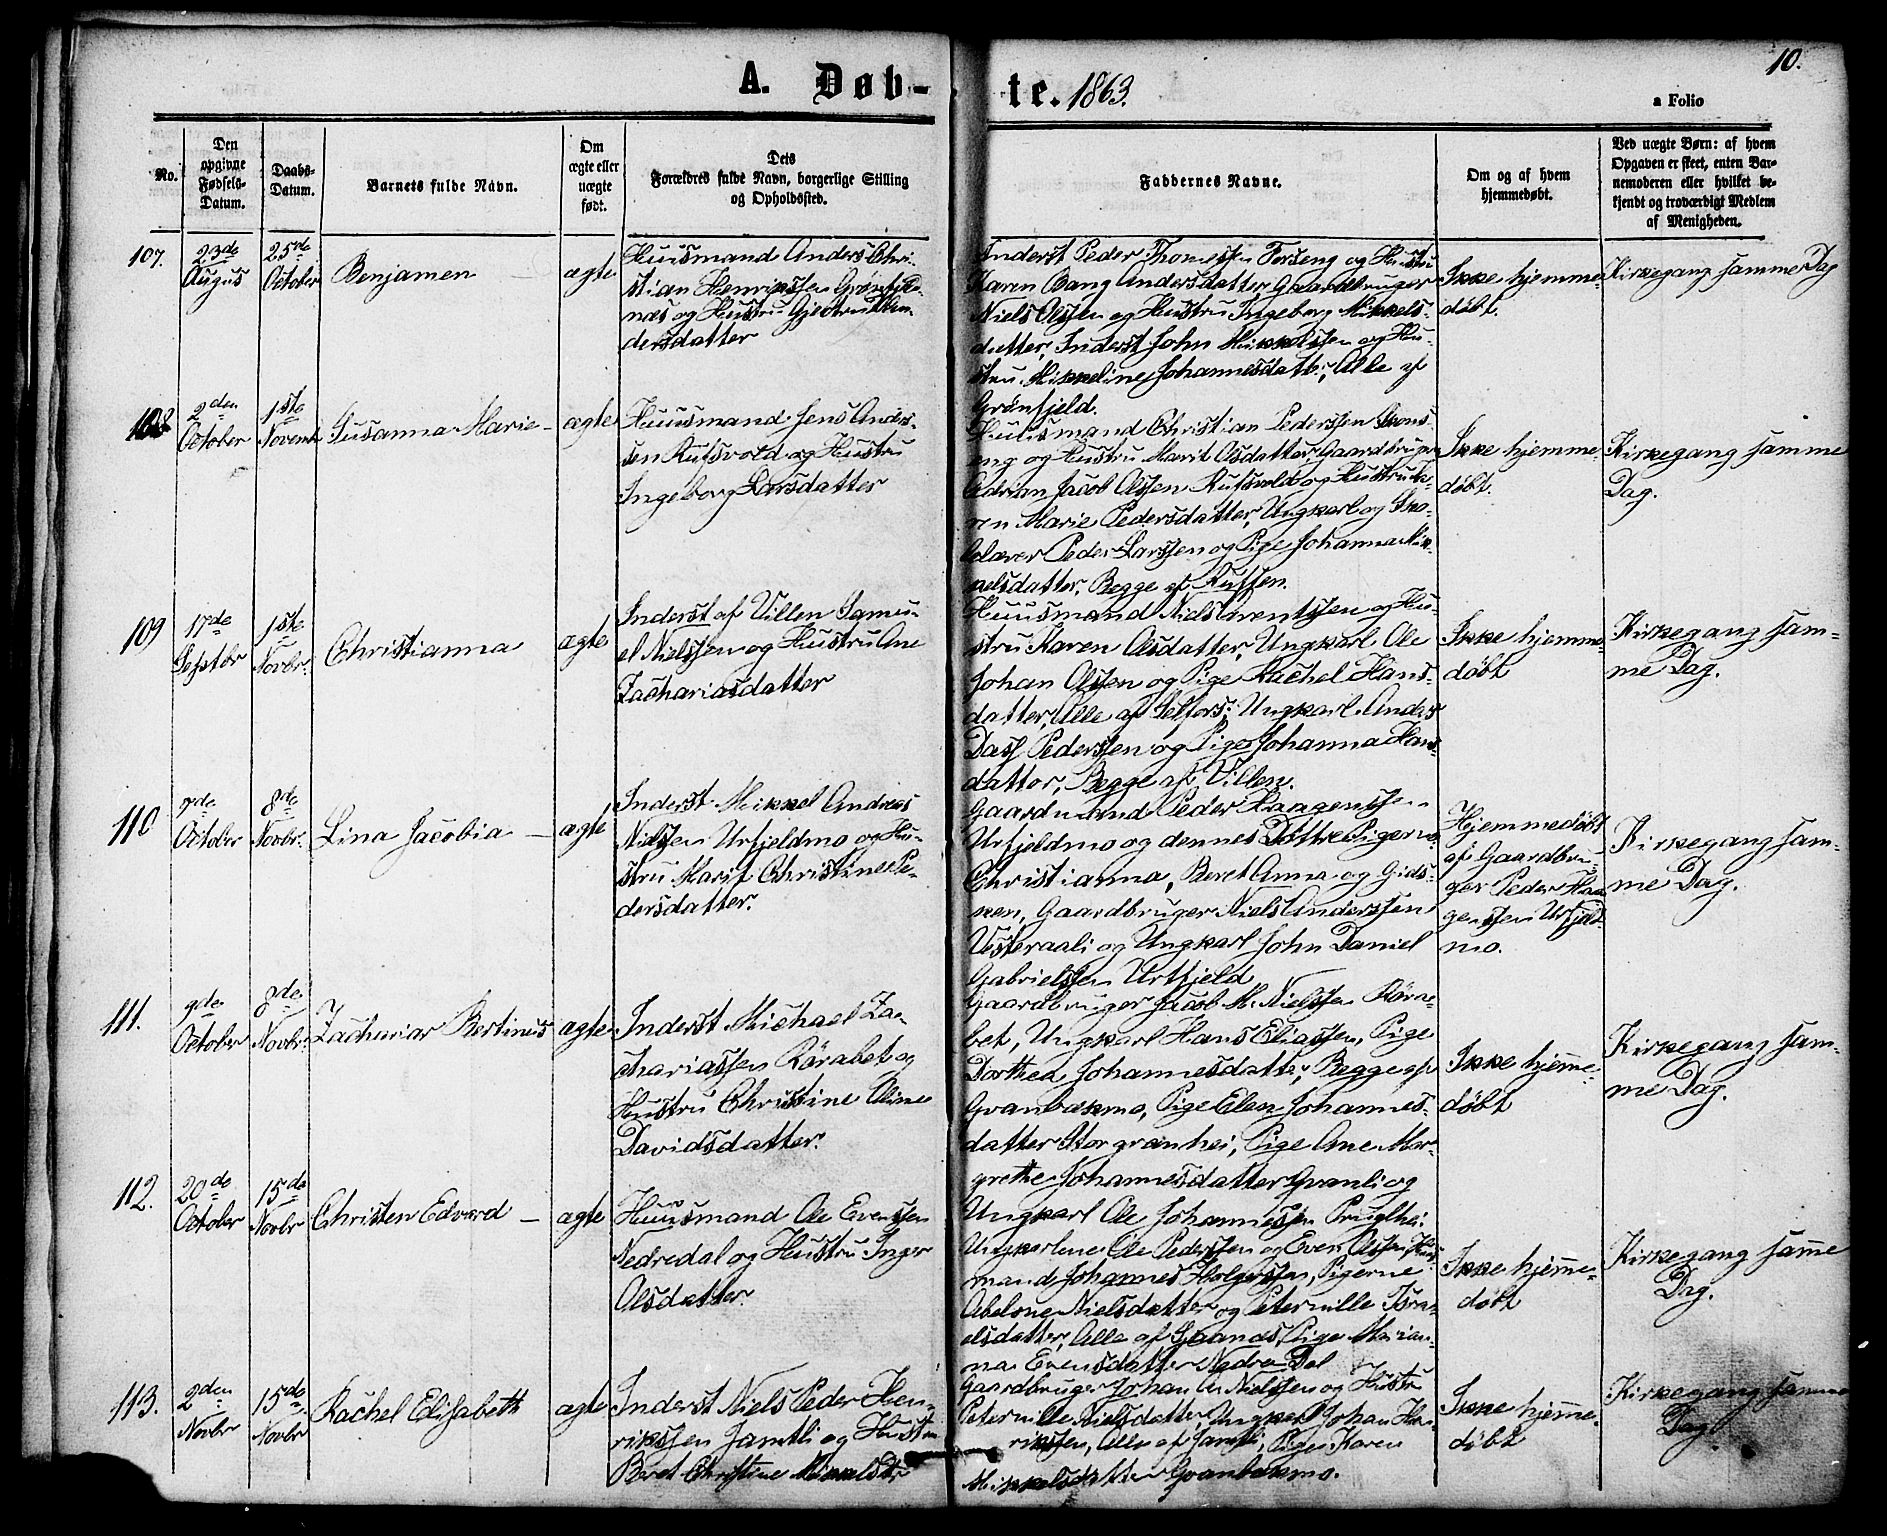 10.
A. Døb- te. 1863.
a Folio
No.
Den opgivne Fødsels-Datum.
Daabs-Datum.
Barnets fulde Navn.
Om ægte eller uægte født.
Dets Forældres fulde Navn, borgerlige Stilling og Opholdssted.
Faddernes Navne.
Om og af hvem hjemmedøbt.
Ved uægte Børn: af hvem Opgaven er skeet, enten Barnemoderen eller hvilket bekjendt og troværdigt Medlem af Menigheden.
107.
23de
Augus
25de
October
Benjamen
ægte
Huusmand Anders Chri-
stian Henrikssen Grønfjeld-
næs og Hustru
dersdatter
Inderst Peder Thomessen Forseng og Hustru
Karen Bang Andersdatter, Gaardbruger
Niels Olssen og Hustru Ingeborg Mikkels-
datter, Inderst John Mikkelssen og Hu-
stru Mikkeline Johannesdattr; Alle af
Grønfjeld.
Ikke hjemme-
døbt.
Kirkegang samme Dag
108
2den
October
1ste
Novemb
Susanna Marie -
ægte
Huusmand Jens Anders-
sen Rufsvold og Hustru
Ingeborg Larsdatter
Huusmand Christian Pederssen Skons-
eng og Hustru Marit Olsdatter, Gaardbruger
Adrian Jacob Olssen Rufsvold og Hustru Ka-
ren Marie Pedersdatter, Ungkarl og Sko-
lelærer Peder Larssen og Pige Johanna Mik-
kelsdatter, Begge af Ruffen.
Ikke hjemme-
døbt.
Kirkegang samme
Dag.
109
17de
Septbr
1ste
Novbr.
Christianna
ægte
Inderst af Villen Samu-
el Nielssen og Hustru Ane
Zachariasdatter
Huusmand Niels Arentssen og Hu-
stru Karen Olsdatter, Ungkarl Ole
Johan Olssen og Pige Rachel Hans-
datter, Alle af Selfors; Ungkarl Anders
Dass Pederssen og Pige Johanna Hans-
datter, Begge af Villen.
Ikke hjemme-
døbt
Kirkegang sam-
me Dag.
110
7de
October
8de
Novbr.
Lina Jacobia -
ægte
Inderst Mikkel Andreas
Nielssen Urfjeldmo og Hu-
stru Marit Christine Pe-
dersdatter.
Gaardmand Peder Haagenssen
Urfjeldmo og dennes Døttre Pigerne
Christianna, Beret Anna og Gids-
ken, Gaardbruger Niels Anderssen
Vesteraali og Ungkarl John Daniel
Gabrielssen Urtfjeld
Hjemmedøbt
af Gaardbru-
ger Peder Haa-
genssen Urfjeld-
mo.
Kirkegang sam-
me Dag.
111.
9de
October
8de
Novbr.
Zacharias Bertinus
ægte
Inderst Michael Za-
chariassen Rørabet og
Hustru Christine Oline
Davidsdatter.
Gaardbruger Jacob M. Nielssen Røra-
bet, Ungkarl Hans Eliassen, Pige
Dorthea Johannesdatter, Begge af
Granbækmo, Pige Elen Johannes-
datter Storgrænhei, Pige Ane Mar-
grethe Johannesdatter Granli og
Ungkarl Ole Johannessen Pruglhei.
Ikke hjemme-
døbt
Kirkegang sam-
me Dag.
112.
20de
October
15de
Novbr
Christen Edvard -
ægte
Huusmand Ole Evenssen
Nedredal og Hustru Inger
Olsdatter.
Ungkarlene Ole Pederssen og Even Olssen, Huus-
mand Johannes Holgerssen, Pigerne
Abelone Nielsdatter og Peternille Isra-
elsdatter, Alle af Pige Marian-
na Evensdatter Nedre Dal
Ikke hjemme-
døbt
Kirkegang samme
Dag.
113.
2den
Novbr
15de
Novbr
Rachel Elisabeth
ægte
Inderst Niels Peder Hen-
rikssen Jamtli og Hustru
Beret Christine Mikkelsdtr
Gaardbruger Johan A. Nielssen og Hustru
Petternille Nielsdatter, Ungkarl Johan Hen-
rikssen, Alle af Jamtli, Pige Karen
Mikkelsdatter Granbækmo.
Ikke hjemme-
døbt
Kirkegang samme
Dag